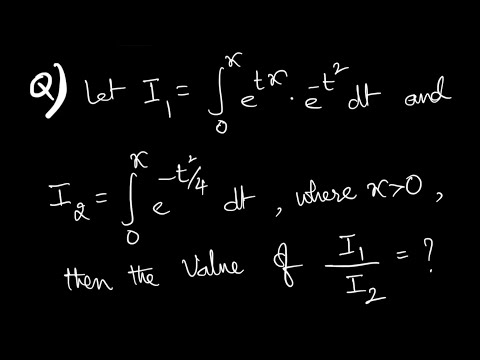 Q) Let I₁ = ∫₀ˣ e^{tx} · e^{-t²} dt and
I₂ = ∫₀ˣ e^{-t²/4} dt , where x>0 ,
then the value of I₁/I₂ = ?